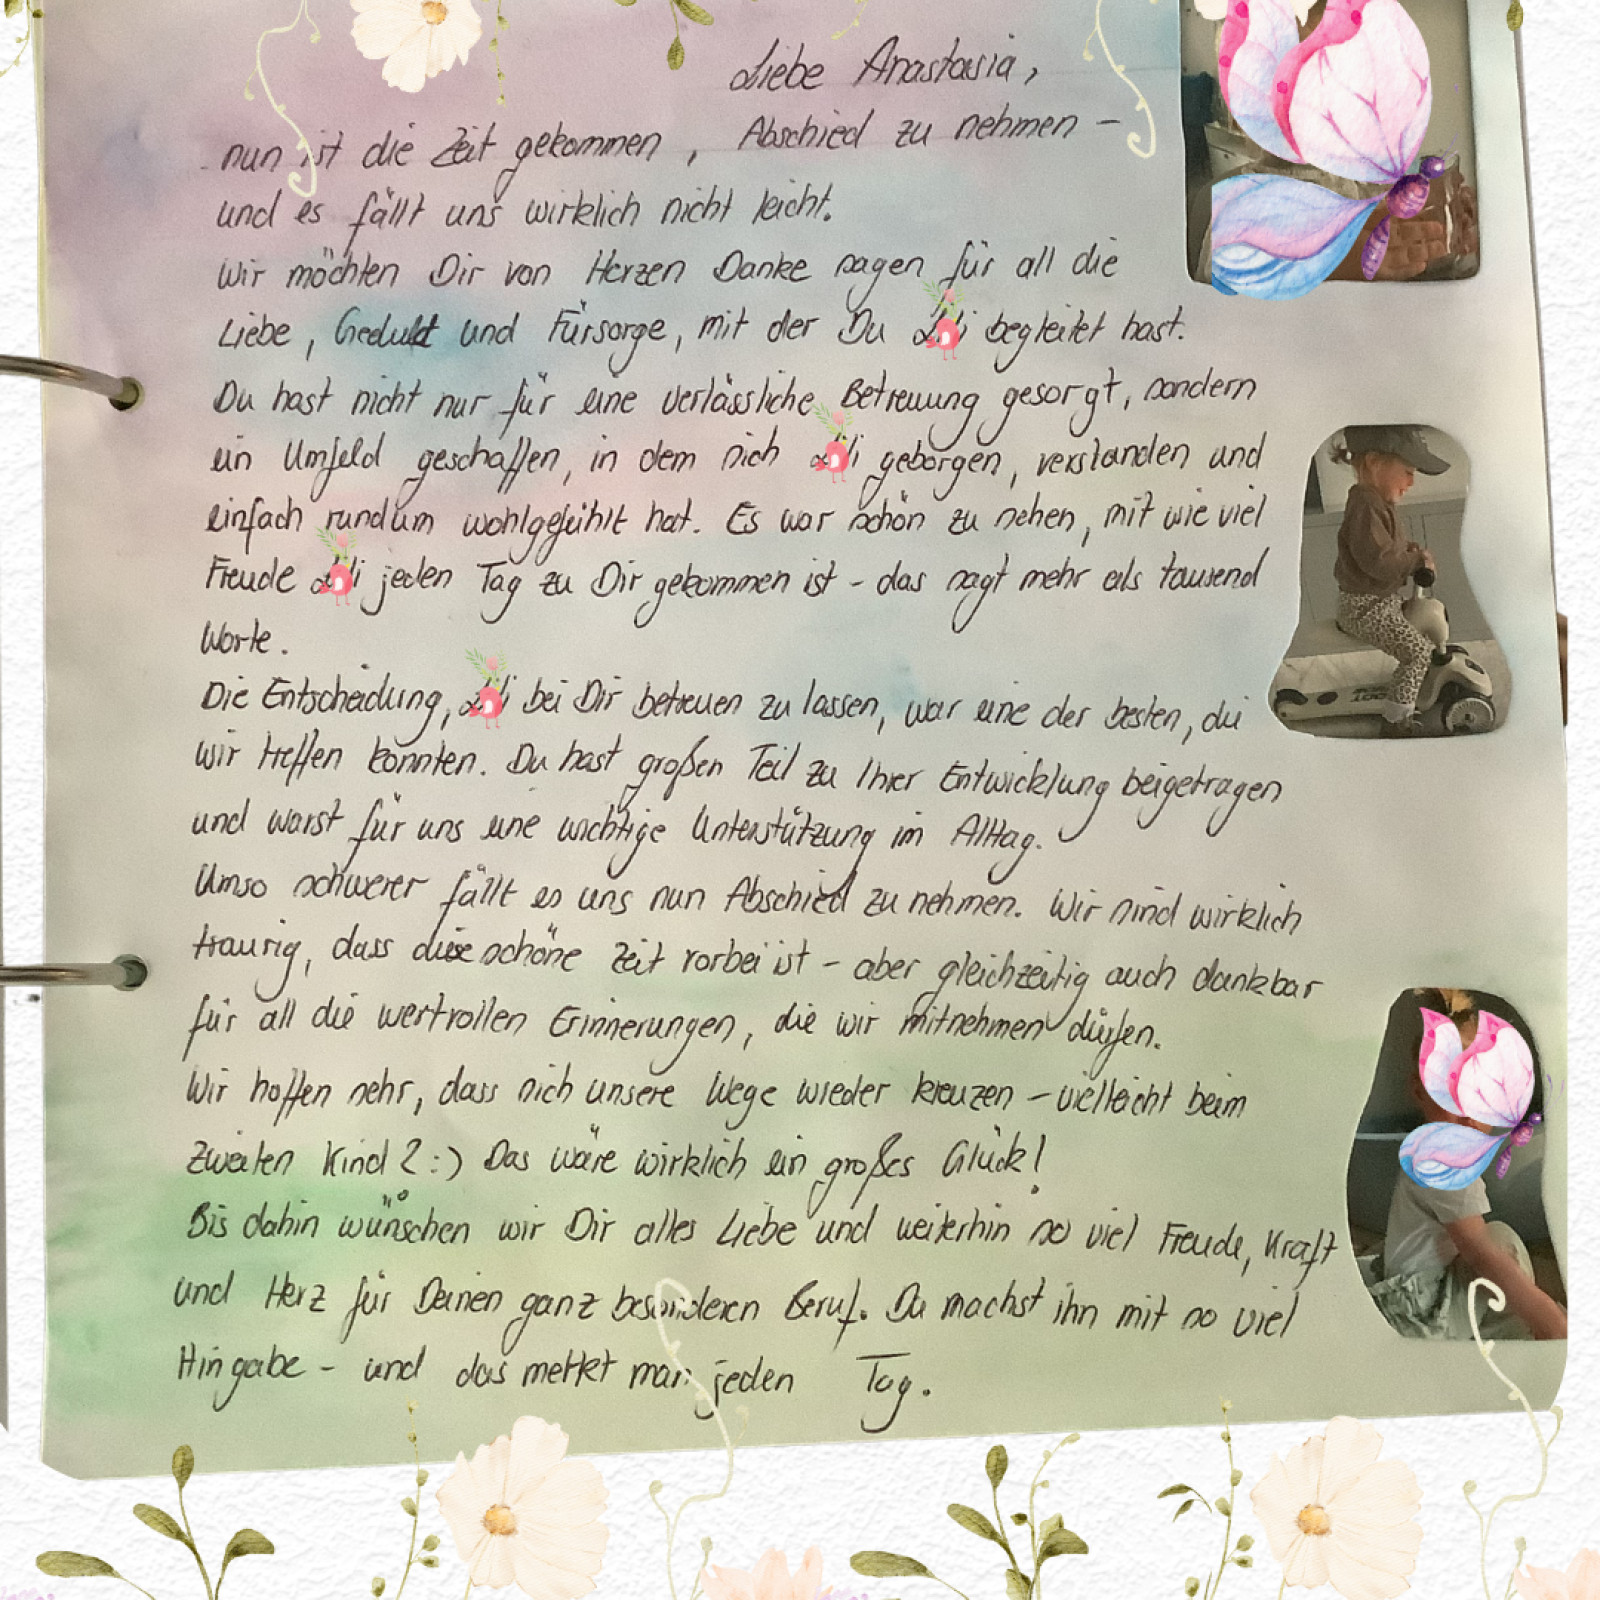 Liebe Anastasia,
nun ist die Zeit gekommen, Abschied zu nehmen –
und es fällt uns wirklich nicht leicht.
Wir möchten Dir von Herzen Danke sagen für all die
Liebe, Geduld und Fürsorge, mit der Du begleitet hast.
Du hast nicht nur für eine verlässliche Betreuung gesorgt, sondern
ein Umfeld geschaffen, in dem sich geborgen, verstanden und
einfach rundum wohlgefühlt hat. Es war schön zu sehen, mit wie viel
Freude jeden Tag zu Dir gekommen ist – das sagt mehr als tausend
Worte.
Die Entscheidung, bei Dir betreuen zu lassen, war eine der besten, die
wir treffen konnten. Du hast großen Teil zu Ihrer Entwicklung beigetragen
und warst für uns eine wichtige Unterstützung im Alltag.
Umso schwerer fällt es uns nun Abschied zu nehmen. Wir sind wirklich
traurig, dass diese schöne Zeit vorbei ist – aber gleichzeitig auch dankbar
für all die wertvollen Erinnerungen, die wir mitnehmen dürfen.
Wir hoffen sehr, dass sich unsere Wege wieder kreuzen – vielleicht beim
zweiten Kind? :) Das wäre wirklich ein großes Glück!
Bis dahin wünschen wir Dir alles Liebe und weiterhin so viel Freude, Kraft
und Herz für Deinen ganz besonderen Beruf. Du machst ihn mit so viel
Hingabe – und das merkt man jeden Tag.